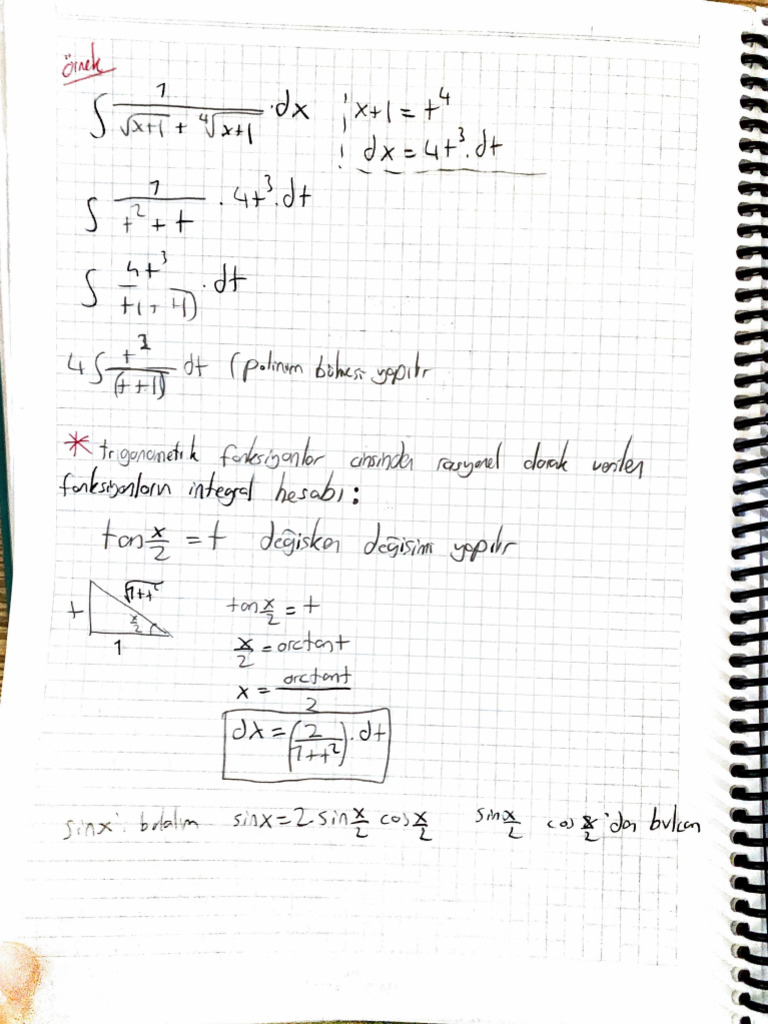 örnek
∫ 1/(√(x+1) + ⁴√(x+1)) · dx x+1 = t⁴
dx = 4t³.dt
∫ 1/(t² + t) · 4t³.dt
∫ 4t³/(t(t+1)) · dt
4∫ t²/(t+1) dt (polinom bölmesi yapılır
* trigonometrik fonksiyonlar cinsinden rasyonel olarak verilen
fonksiyonların integral hesabı:
tan x/2 = t değişken değişimi yapılır
t √(1+t²) x/2 1
tan x/2 = t
x/2 = arctant
x = arctant/2
dx = (2/(1+t²)).dt
sinx'i bulalım sinx = 2.sin x/2 cos x/2 sin x/2 cos x/2 'den bulcan